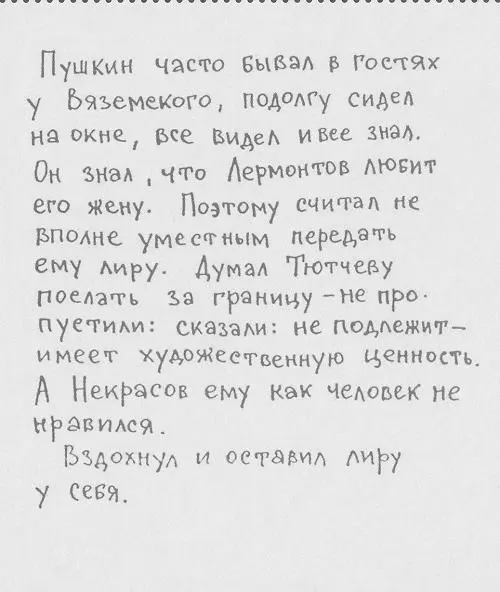 Пушкин часто бывал в гостях
у Вяземского, подолгу сидел
на окне, все видел и все знал.
Он знал, что Лермонтов любит
его жену. Поэтому считал не
вполне уместным передать
ему лиру. Думал Тютчеву
послать за границу – не про-
пустили: сказали: не подлежит –
имеет художественную ценность.
А Некрасов ему как человек не
нравился.
Вздохнул и оставил лиру
у себя.